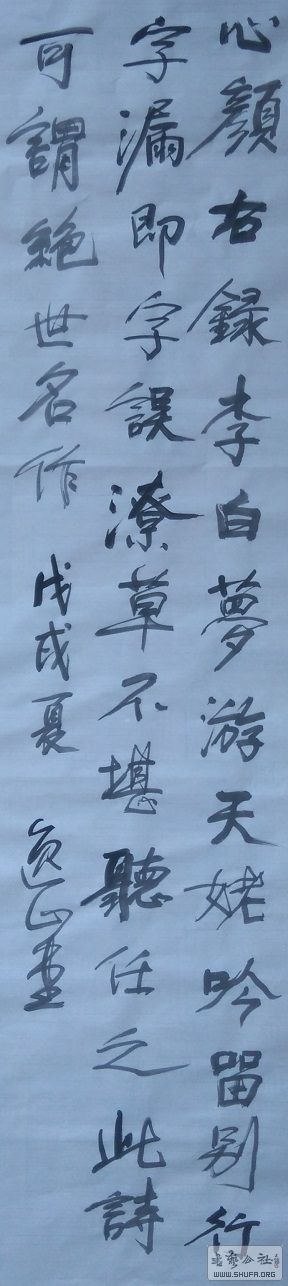 心顏右録李白夢游天姥吟留别行
字漏即字誤潦草不堪聽任之此詩
可謂絶世名作 戊戌夏 逸山書
书艺公社
WWW.SHUFA.ORG